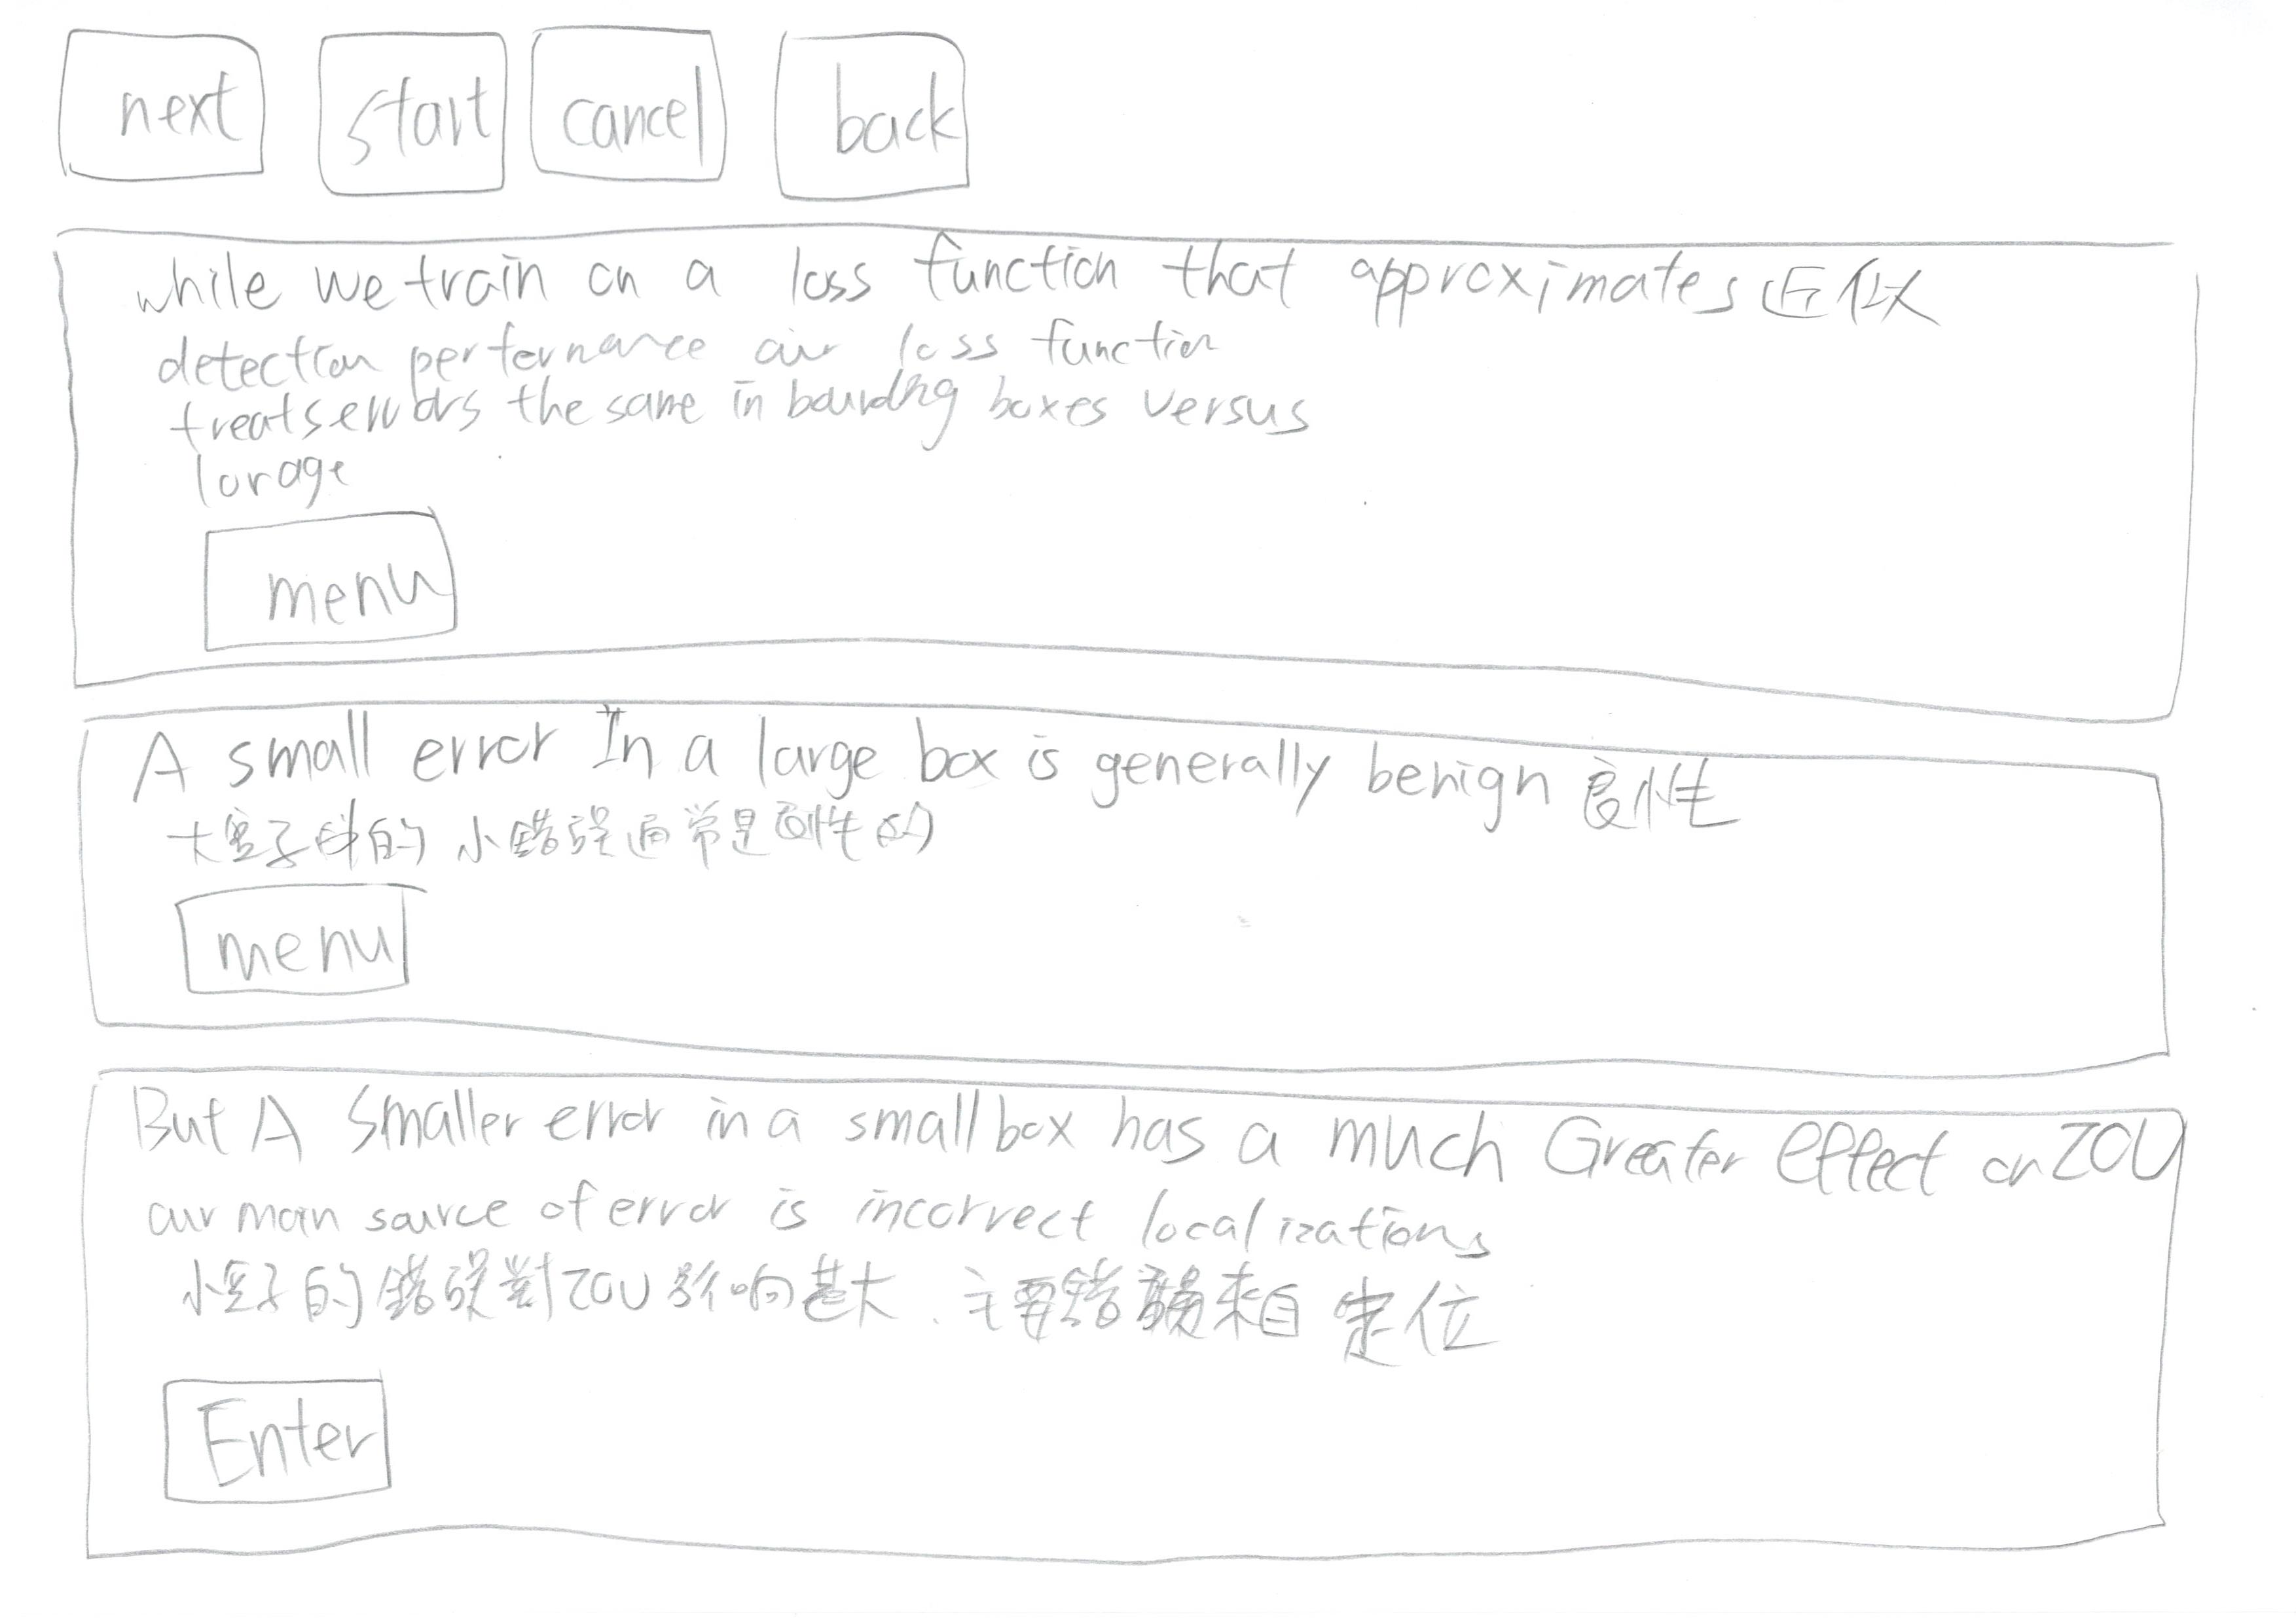 next start cancel back
while we train on a loss function that approximates 近似
detection performance our loss function
treats errors the same in bounding boxes versus
menu
A small error In a large box is generally benign 良性
大盒子中的小錯誤通常是良性的
menu
But A smaller error in a small box has a much Greater effect on IOU
our main source of error is incorrect localizations
小盒子的錯誤對IOU影响甚大、主要錯誤來自定位
Enter